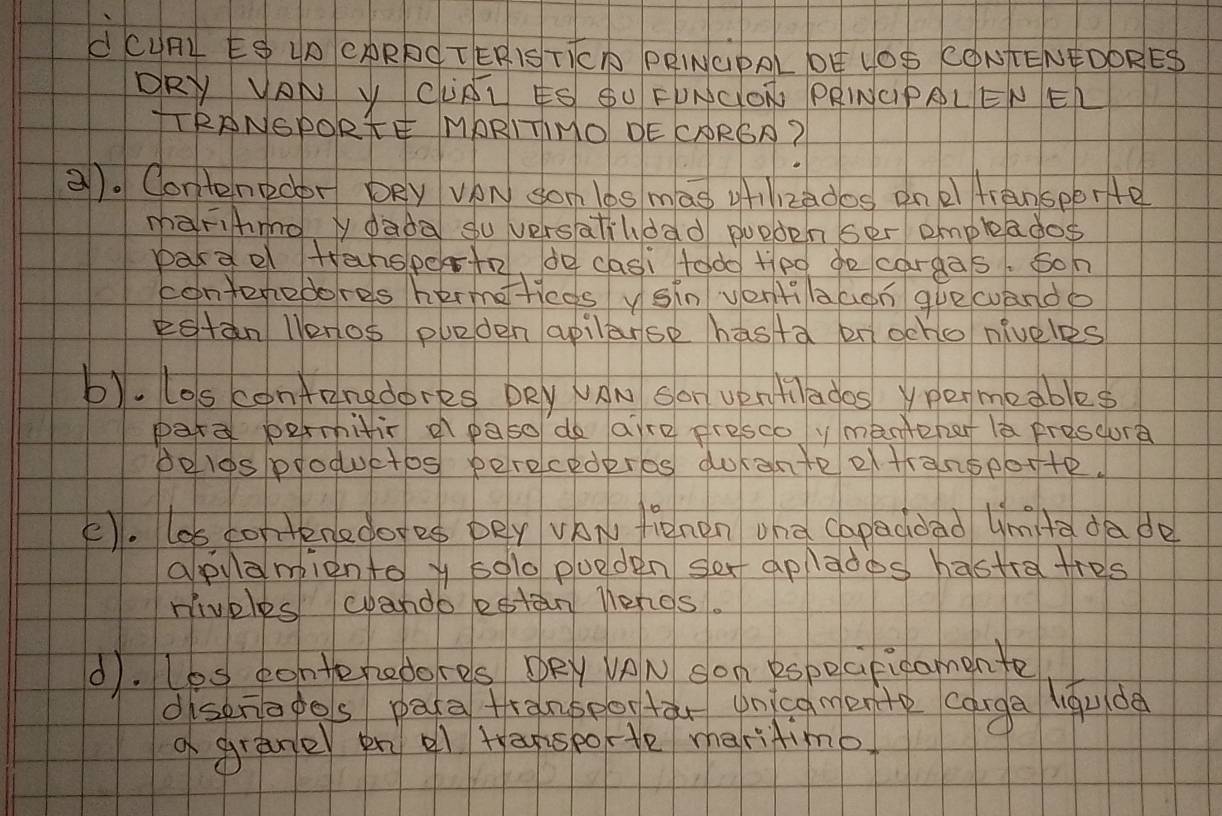 ¿CUAL ES LA CARACTERISTICA PRINCIPAL DE LOS CONTENEDORES
DRY VAN Y CUÁL ES SU FUNCION PRINCIPAL EN EL
TRANSPORTE MARITIMO DE CARGA?
a). Contenedor DRY VAN son los más utilizados en el transporte
marítimo y dada su versatilidad pueden ser empleados
para el transporte, de casi todo tipo de cargas. Son
contenedores herméticos y sin ventilación que cuando
estan llenos pueden apilarse hasta en ocho niveles
b). Los contenedores DRY VAN son ventilados y permeables
para permitir el paso de aire fresco y mantener la frescura
de los productos perecederos durante el transporte.
c). Los contenedores DRY VAN tienen una capacidad limitada de
apilamiento y solo pueden ser apilados hastra tres
niveles cuando estan llenos.
d). Los contenedores DRY VAN son especificamente
diseñados para transportar unicamente carga líquida
a granel en el transporte maritimo.